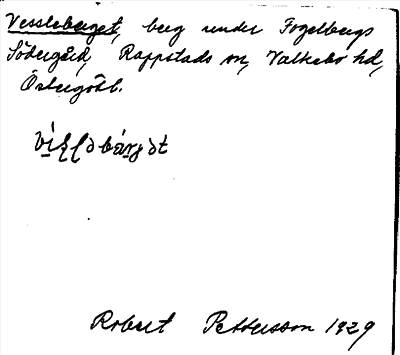 Vessleberget, berg under Fogelbergs
Södergård, Rappstads sn, Valkebo hd,
Östergötl.
Robert Pettersson 1929